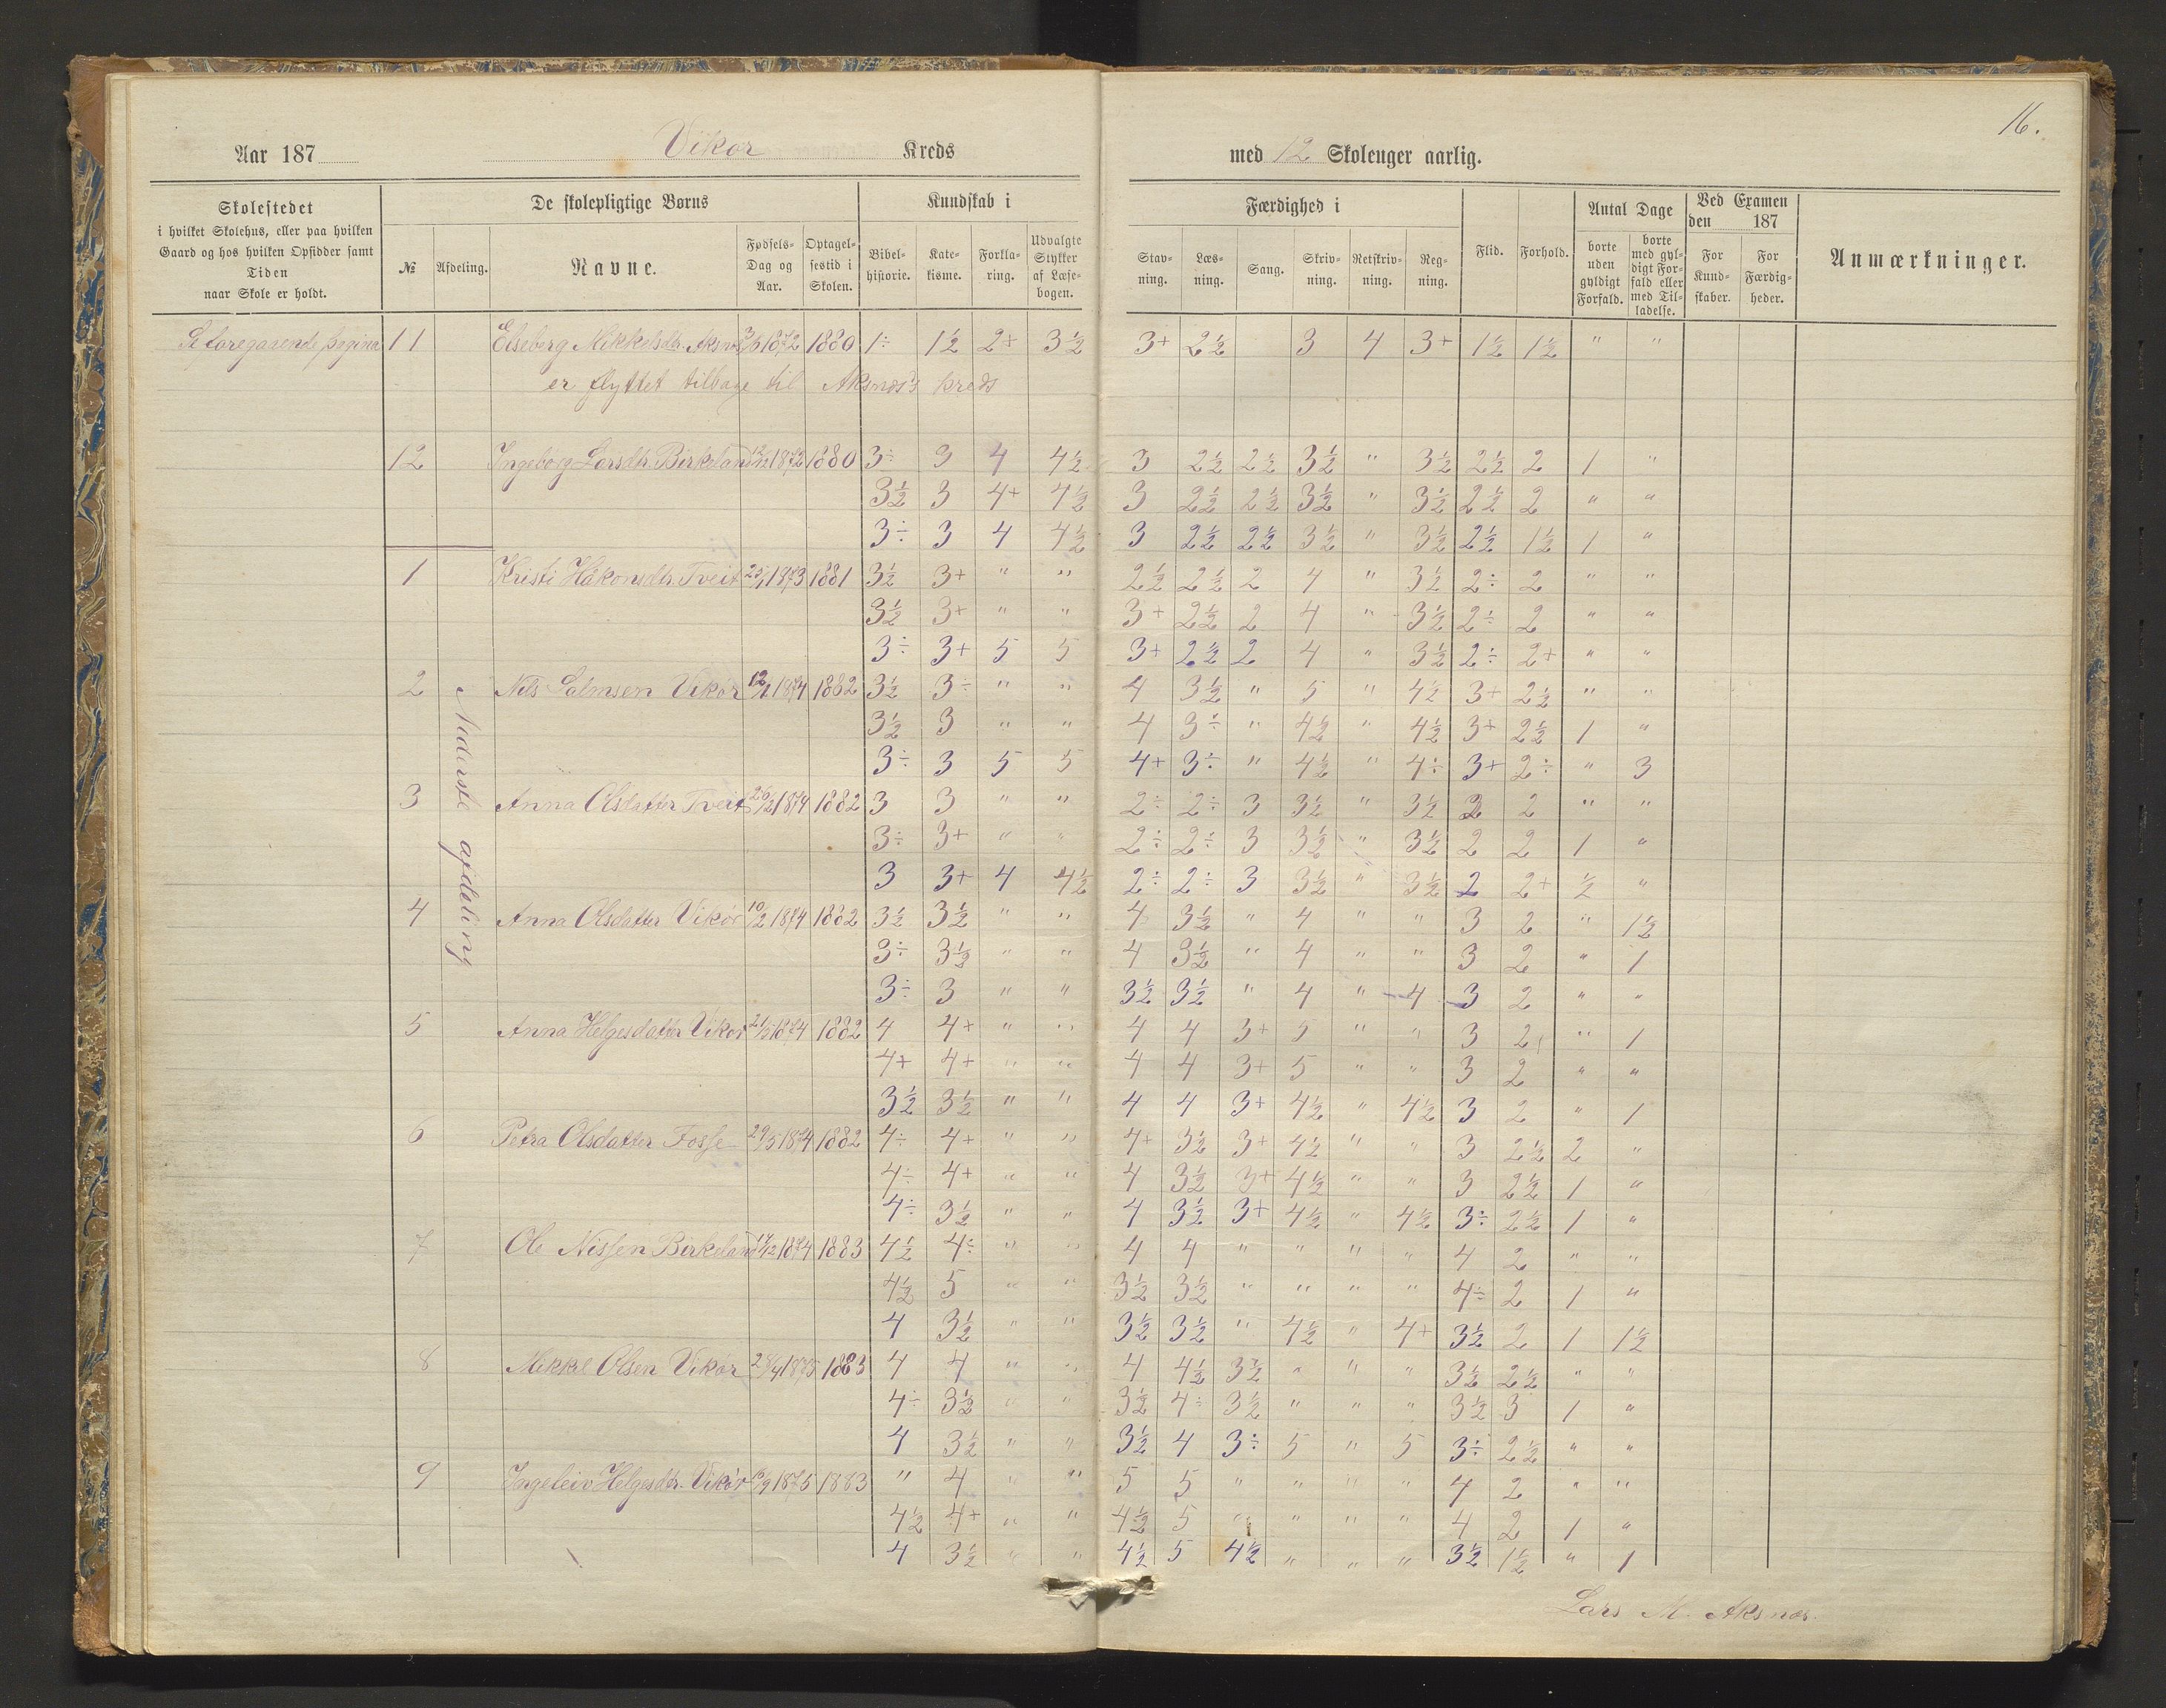 16.
Aar 187 Vikor Kreds med 12 Skoleuger aarlig.
Skolestedet
i hvilket Skolehus, eller paa hvilken
Gaard og hos hvilken Opsidder samt
Tiden
naar Skole er holdt.
De skolepligtige Børns
№ Afdeling. Navne. Fødsels-Dag og Aar. Optagelsestid i Skolen.
Kundskab i
Bibelhistorie. Katekisme. Forklaring. Udvalgte Stykker af Læsebogen.
Færdighed i
Stavning. Læsning. Sang. Skrivning. Retskrivning. Regning.
Flid. Forhold.
Antal Dage
borte uden gyldigt Forfald. borte med gyldigt Forfald eller med Tilladelse.
Ved Examen den 187
For Kundskaber. For Færdigheder.
Anmærkninger.
Se foregaaende pagina 11 Elseberg Mikkelsdtr. Aksnes 3/6 1872 1880 1÷ 1½ 2+ 3½ 3+ 2½ 3 4 3+ 1½ 1½ " "
er flyttet tilbage til Aksnæs's kreds
12 Ingeborg Larsdtr. Birkeland 1872 1880 3÷ 3 4 4½ 3 2½ 2½ 3½ " 3½ 2½ 2 1 "
3½ 3 4+ 4½ 3 2½ 2½ 3½ " 3½ 2½ 2 " "
3÷ 3 4 4½ 3 2½ 2½ 3½ " 3½ 2½ 1½ 1 "
Nederste afdeling
1 Kristi Håkonsdtr. Tveit 25/1 1873 1881 3½ 3+ " " 2½ 2½ 2 4 " 3½ 2÷ 2 " "
3½ 3+ " " 3+ 2½ 2 4 " 3½ 2÷ 2 " "
3÷ 3+ 5 5 3+ 2½ 2 4 " 3½ 2÷ 2+ " "
2 Nils Salmsen Vikør 12/1 1874 1882 3½ 3÷ " " 4 3½ " 5 " 4½ 3+ 2½ " "
3½ 3 " " 4 3÷ " 4½ " 4½ 3+ 2½ 1 "
3÷ 3 5 5 4+ 3÷ " 4½ " 4÷ 3+ 2÷ " 3
3 Anna Olsdatter Tveit 26/2 1874 1882 3 3 " " 2÷ 2÷ 3 3½ " 3½ 2 2 " "
3÷ 3+ " " 2÷ 2÷ 3 3½ " 3½ 2 2 1 "
3 3+ 4 4½ 2÷ 2÷ 3 3½ " 3½ 2 2+ ½ "
4 Anna Olsdatter Vikør 10/2 1874 1882 3½ 3½ " " 4 3½ " 4 " " 3 2 " 1½
3÷ 3½ " " 4 3½ " 4 " " 3 2 " 1
3÷ 3 " " 3½ 3½ " 4 " 4 3 2 " "
5 Anna Helgesdatter Vikør 21/5 1874 1882 4 4+ " " 4 4 3+ 5 " " 3 2 " 1
4+ 4+ " " 4 4 3+ 5 " " 3 2 " "
3½ 3½ " " 4 4 3+ 4½ " 4½ 3 2 " 1
6 Petra Olsdatter Fosse 29/5 1874 1882 4÷ 4+ " " 4+ 3½ 3+ 4½ " " 3 2½ 2 "
4÷ 4+ " " 4 3½ 3+ 4½ " " 3 2½ 1 "
4÷ 3½ " " 4 3½ 3+ 4½ " 4½ 3÷ 2½ 1 "
7 Ole Nilssen Birkeland 17/12 1874 1883 4½ 4÷ " " 4 4 " " " " 4 2 " "
4½ 5 " " 3½ 3½ " " " " 4÷ 2 1 "
4 3½ " " 3½ 3½ " 4½ " 4+ 3½ 2 1 1½
8 Mikkel Olsen Vikør 1875 1883 4 4 " " 4 4½ 3½ " " " 3½ 2½ " "
4÷ 3½ " " 3½ 4÷ 3½ " " " 3½ 3 1 "
4 3½ " " 3½ 4 3÷ 5 " 5 3÷ 2½ " "
9 Ingeleiv Helgesdtr. Vikør 1875 1883 " 4 " " 5 5 " " " " 4 2 " "
4½ 4+ " " 4½ 5 " " " " 4 2 1 "
4 3½ " " 4½ 5 4½ " " " 3½ 1½ " 1
Lars M. Aksnes.